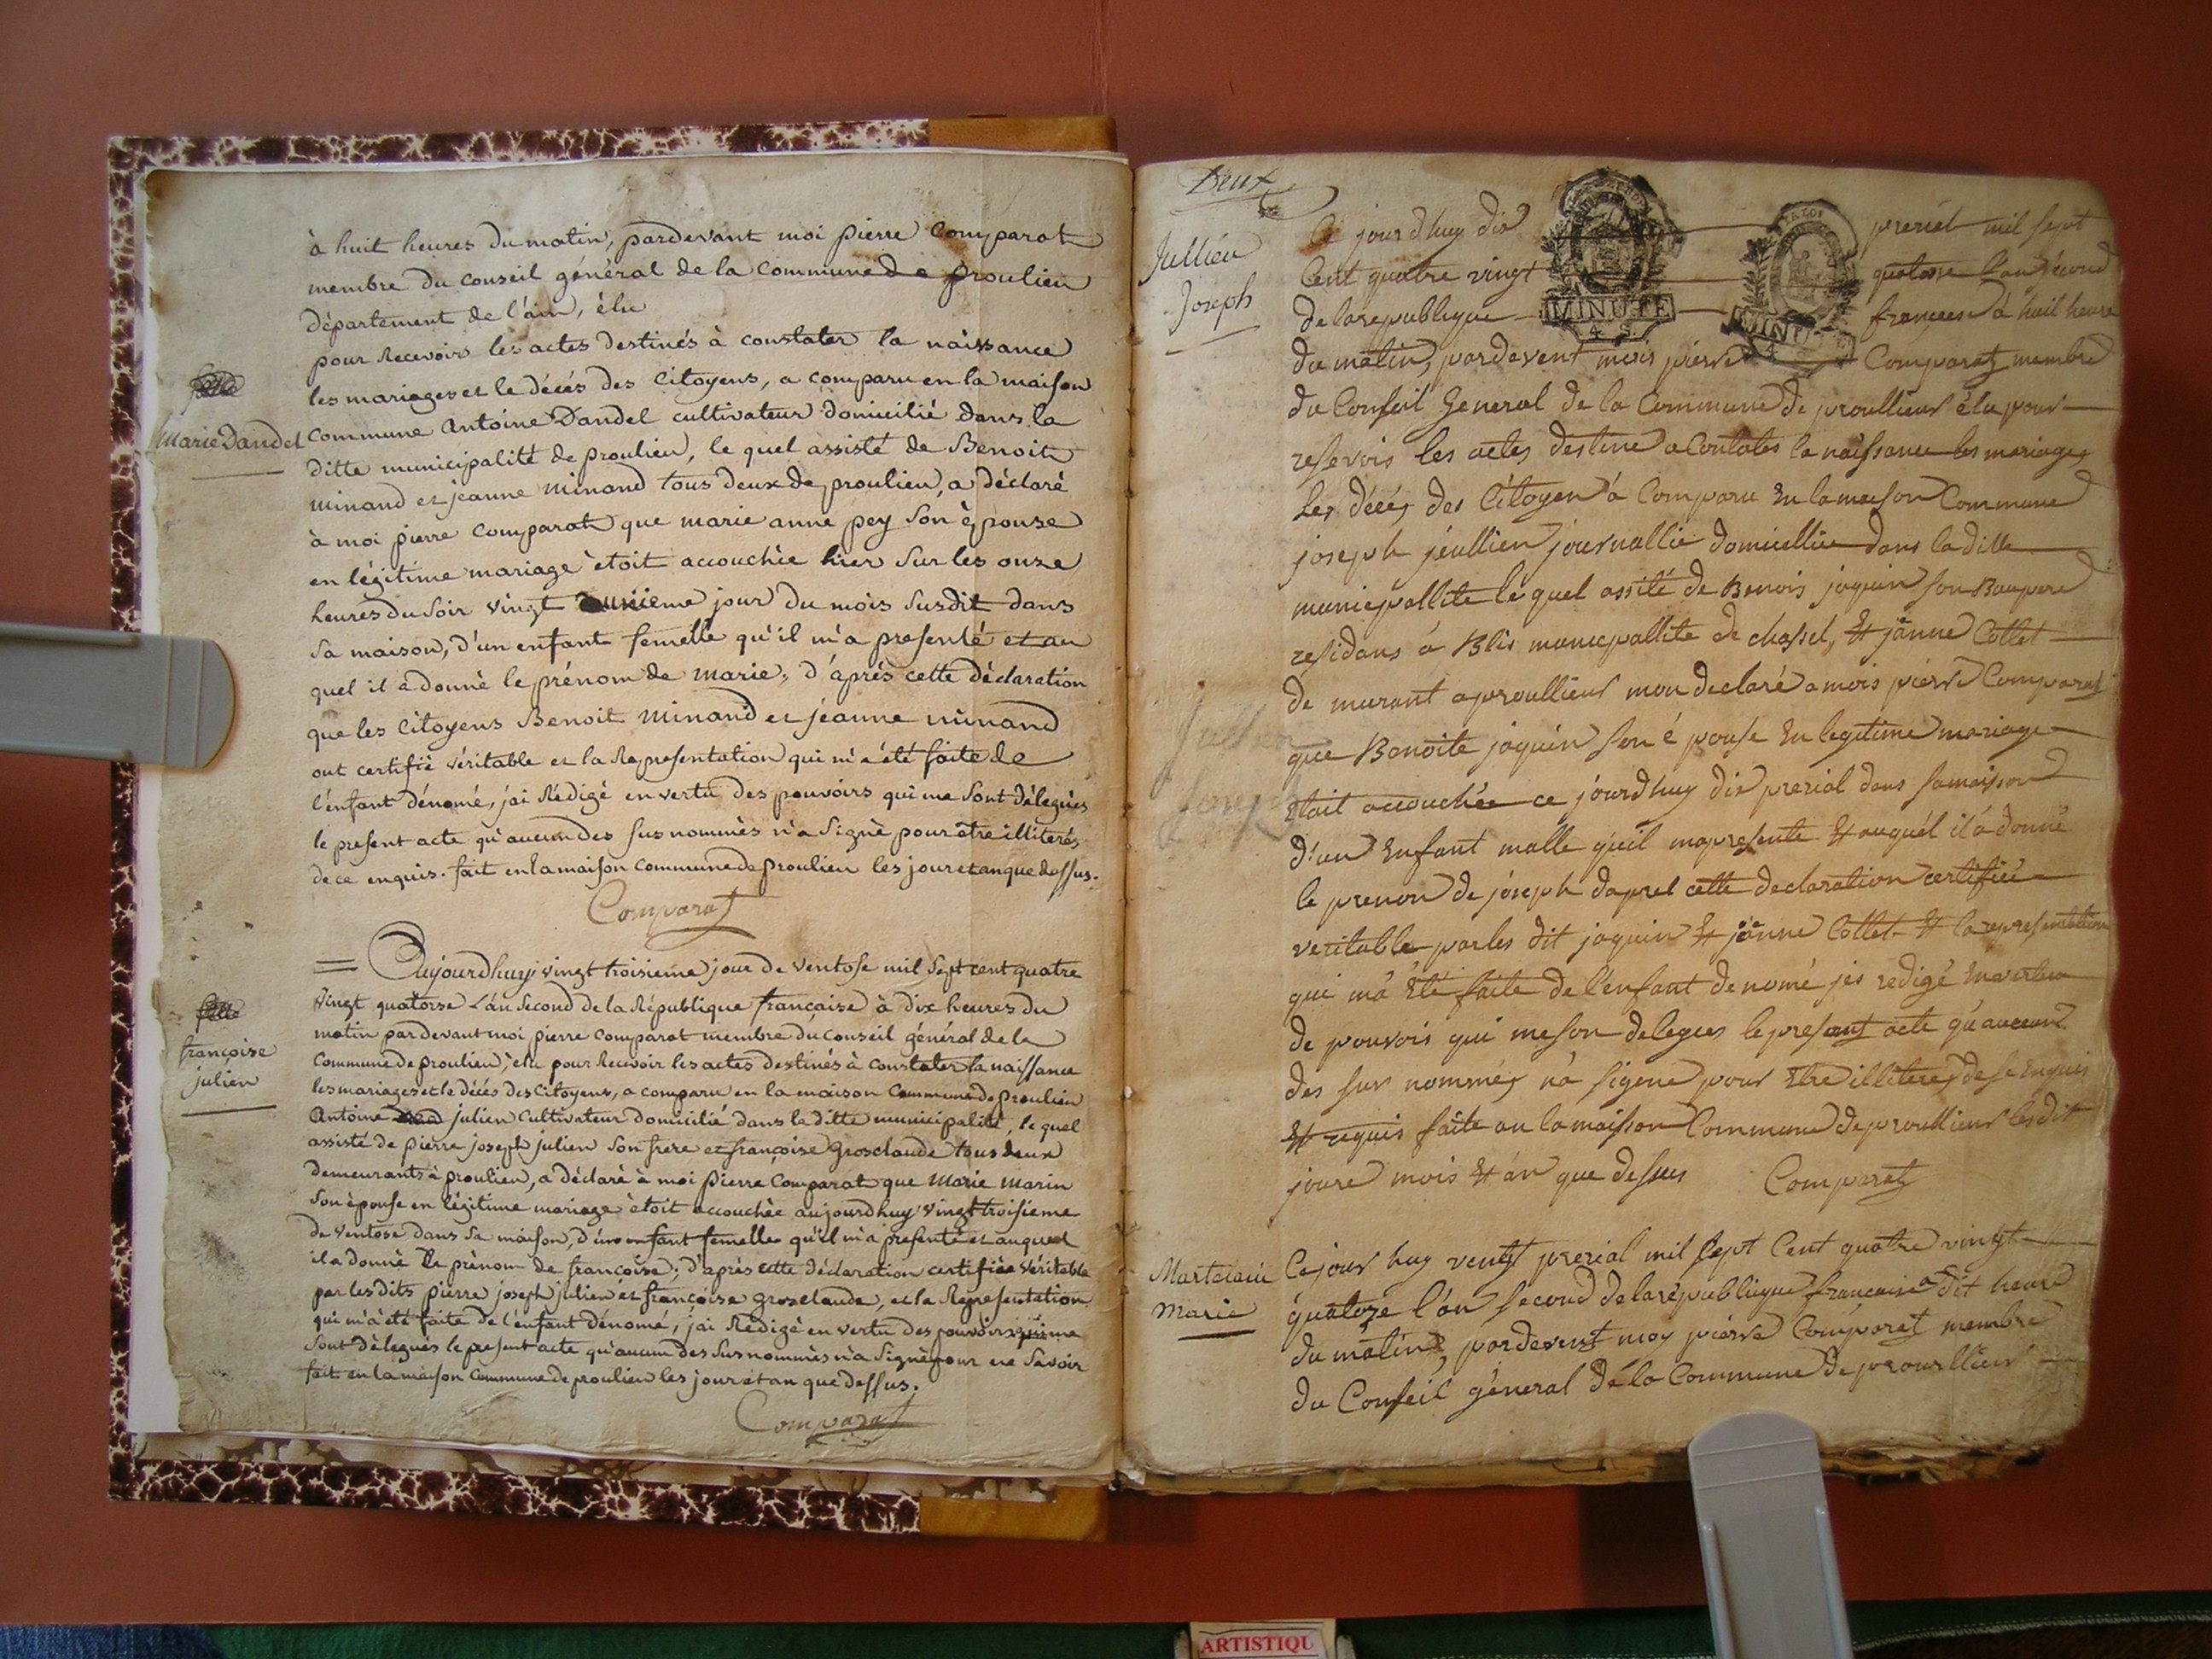 à huit heures du matin, pardevant moi pierre Comparat
membre du conseil général de la commune de proulieu
département de l'ain, élu
pour Recevoir les actes destinés à constater la naissance
les mariages et le décès des Citoyens, a comparu en la maison
Marie Dandel
commune antoine Dandel cultivateur domicilié dans la
ditte municipalité de proulieu, le quel assisté de Benoit
minand et jeanne minand tous deux de proulieu, a déclaré
à moi pierre comparat que marie anne pey son èpouse
en légitime mariage ètoit accouchée hier sur les onze
heures du soir vingt jour du mois susdit dans
sa maison, d'un enfant femelle qu'il m'a presenté et au
quel il a donné le prénom de marie, d'après cette déclaration
que les Citoyens Benoit minand et jeanne minand
ont certifié véritable et la Representation qui m'a été faite de
l'enfant dénomé, j'ai Rédigé en vertu des pouvoirs qui me sont délegués
le present acte qu'aucun des susnommès n'a signé pour etre illiterés
de ce enquis. fait en la maison commune de proulieu les jour et an que dessus.
Comparat
= Aujourdhuy vingt troisieme jour de ventose mil sept cent quatre
vingt quatorse L'an second de la République française à dix heures du
matin par devant moi pierre comparat membre du conseil général de la
françoise
julien
commune de proulieu, èlu pour Recevoir les actes destinés à constater la naissance
les mariages et le décès des Citoyens, a comparu en la maison commune de proulieu
antoine julien cultivateur domicilié dans la ditte municipalité, le quel
assisté de pierre joseph julien son frere et françoise grosclaude tous deux
demeurants à proulieu, a déclaré à moi pierre Comparat que marie marin
son èpouse en légitime mariage ètoit accouchèe aujourdhuy vingt troisieme
de ventose dans sa maison, d'un enfant femelle qu'il m'a presenté et auquel
il a donné le prènom de françoise; d'après cette déclaration certifièe véritable
par les dits pierre joseph julien et françoise grosclaude, et la Representation
qui m'a été faite de l'enfant dénomé, j'ai Rédigé en vertu des pouvoirs qui me
sont délegués le present acte qu'aucun des susnommés n'a signé pour ne savoir
fait en la maison commune de proulieu les jour et an que dessus.
Comparat
Deux
Jullien
Joseph
Ce jourdhuy dix prerial mil sept
Cent quatre vingt quatorse l'an second
de la republique françese à huit heure
MINUTE
4 S.
MINU
4
du matin, pardevent mois pierre Comparat membre
du Conseil General de la Commune de proullieus élu pour
reservois les actes destine a Contates la naissance les mariages
les décés des Citoyen à Comparu en la maison Commune
joseph jeullien journallie domicillie dans la ditte
municpallite le quel assité de Benois joquin son Baupere
residans à Blis municpallite de chassel, et jànne Collet
de murant a proullieus mon declaré a mois pierre Comparat
Jullien
Joseph
que Benoite joquin son é pouse en legitime mariage
Etait accouchée ce jourdhuy dix prerial dans sa maison
d'un Enfant malle qu'il mapresente et auquél il à donné
le prenon de joseph daprel cette declaration certifiée
veritable par les dit joquin et jànne Collet et la representation
qui mà été faite de l'enfant denomé jes redigé en vertu
de pouvois qui me son delegues le presant acte qu'aucun
des sur nommés nà sigene pour Etre illiteres de se enquis
et requis faite an la maison Commune de proullieus lesdit
joure mois et àn que dessus Comparat
Martelain
Marie
Cejour huy ventgt prerial mil sept Cent quatre vingt
quatorze l'an second de la republique française a dit heure
du matin, pardevent moy pierre Comparat membre
du Conseil géneral de la Commune de proullieus
ARTISTIQU